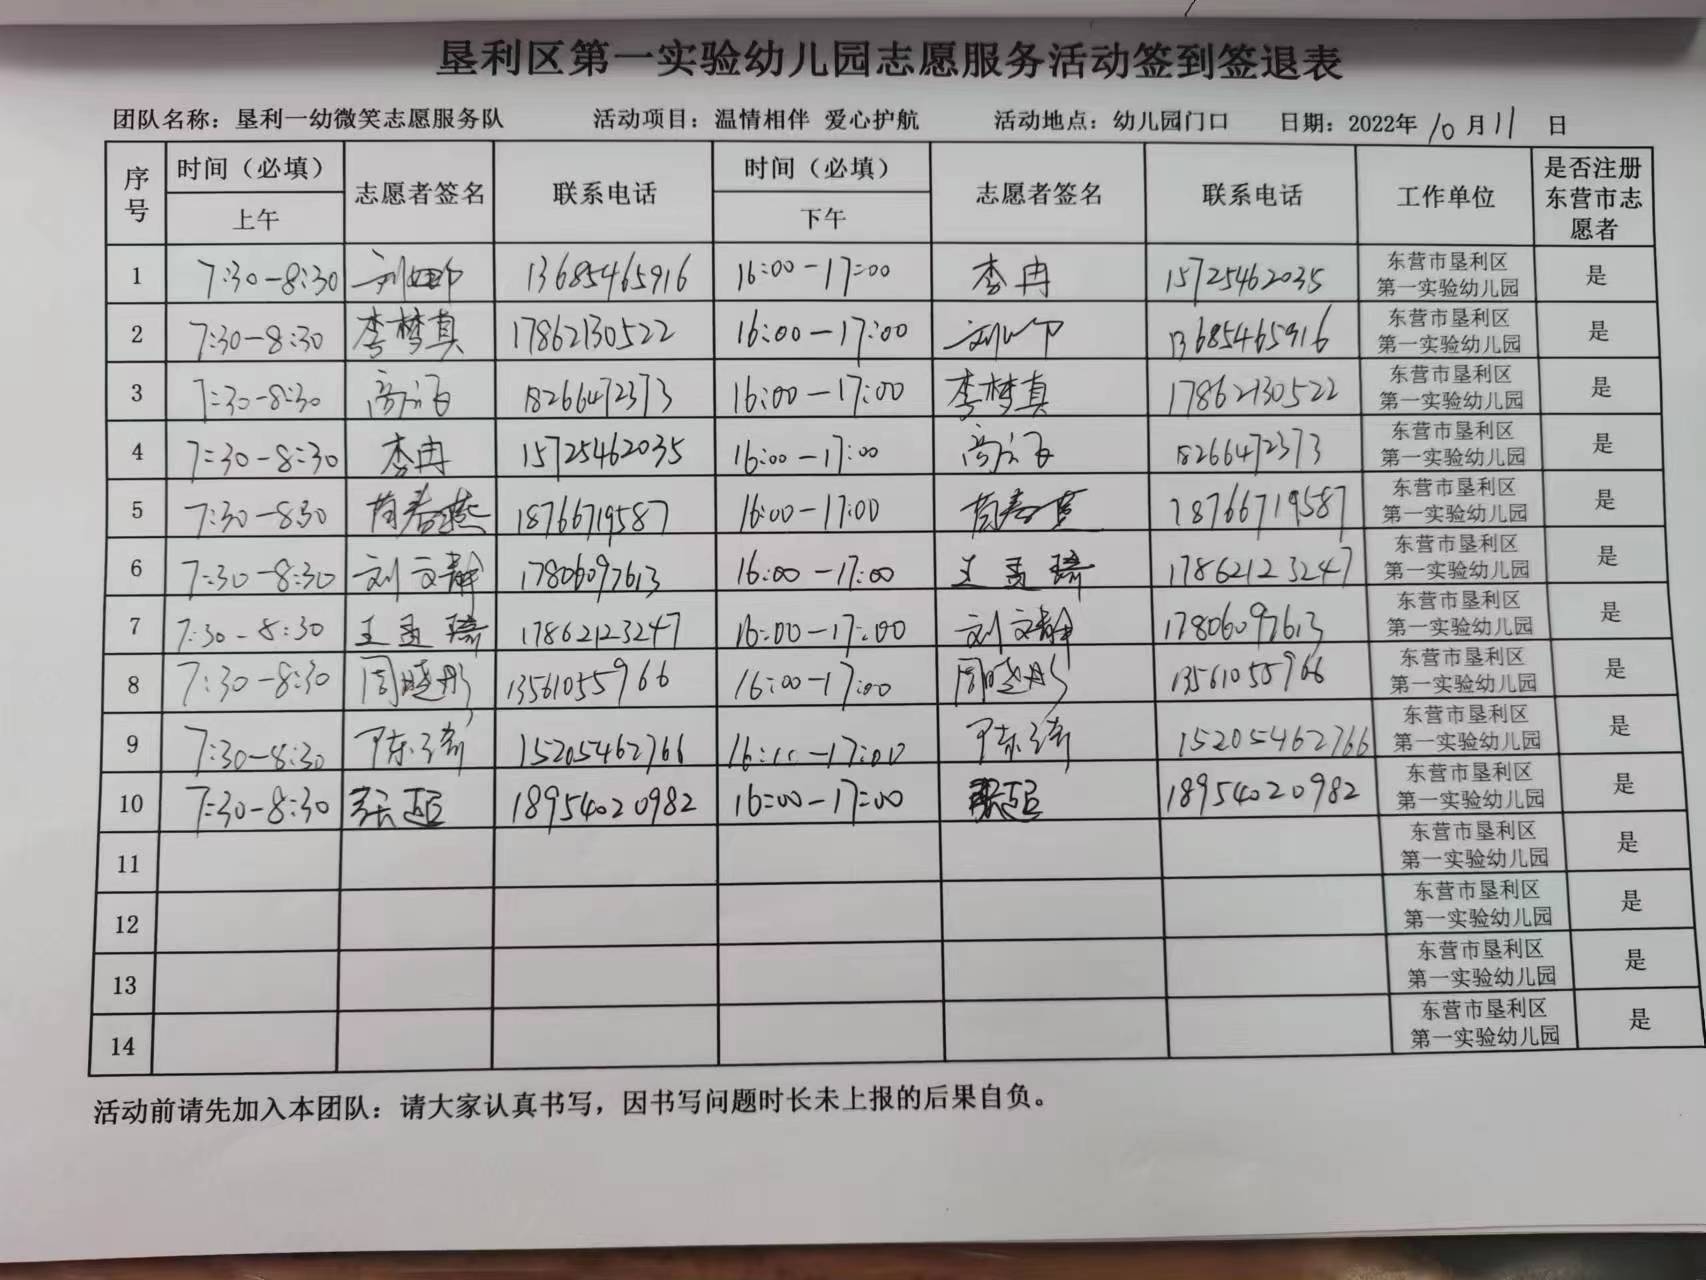 垦利区第一实验幼儿园志愿服务活动签到签退表
团队名称：垦利一幼微笑志愿服务队 活动项目：温情相伴 爱心护航 活动地点：幼儿园门口 日期：2022年10月11日
序号 时间（必填）上午 志愿者签名 联系电话 时间（必填）下午 志愿者签名 联系电话 工作单位 是否注册东营市志愿者
1 7:30-8:30 13685465916 16:00-17:00 李冉 15725462035 东营市垦利区第一实验幼儿园 是
2 7:30-8:30 李梦真 17862130522 16:00-17:00 13685465916 东营市垦利区第一实验幼儿园 是
3 7:30-8:30 18266472373 16:00-17:00 李梦真 17862130522 东营市垦利区第一实验幼儿园 是
4 7:30-8:30 李冉 15725462035 16:00-17:00 18266472373 东营市垦利区第一实验幼儿园 是
5 7:30-8:30 18766719587 16:00-17:00 18766719587 东营市垦利区第一实验幼儿园 是
6 7:30-8:30 刘文静 17806097613 16:00-17:00 17862123247 东营市垦利区第一实验幼儿园 是
7 7:30-8:30 17862123247 16:00-17:00 刘文静 17806097613 东营市垦利区第一实验幼儿园 是
8 7:30-8:30 周晓彤 13561055966 16:00-17:00 周晓彤 13561055966 东营市垦利区第一实验幼儿园 是
9 7:30-8:30 15205462766 16:00-17:00 15205462766 东营市垦利区第一实验幼儿园 是
10 7:30-8:30 18954020982 16:00-17:00 18954020982 东营市垦利区第一实验幼儿园 是
11 东营市垦利区第一实验幼儿园 是
12 东营市垦利区第一实验幼儿园 是
13 东营市垦利区第一实验幼儿园 是
14 东营市垦利区第一实验幼儿园 是
活动前请先加入本团队：请大家认真书写，因书写问题时长未上报的后果自负。